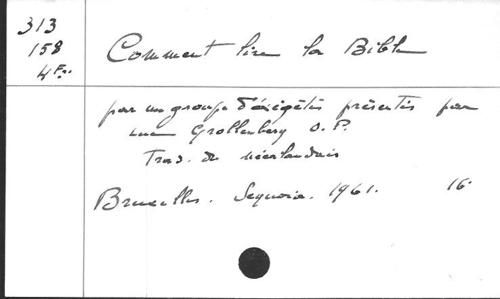 313
158
4 Fr.
Comment lire la Bible
par un groupe d'exégètes présentés par
Luc Grollenberg O.P.
Trad. du néerlandais
Bruxelles. Sequoia. 1961. 16°